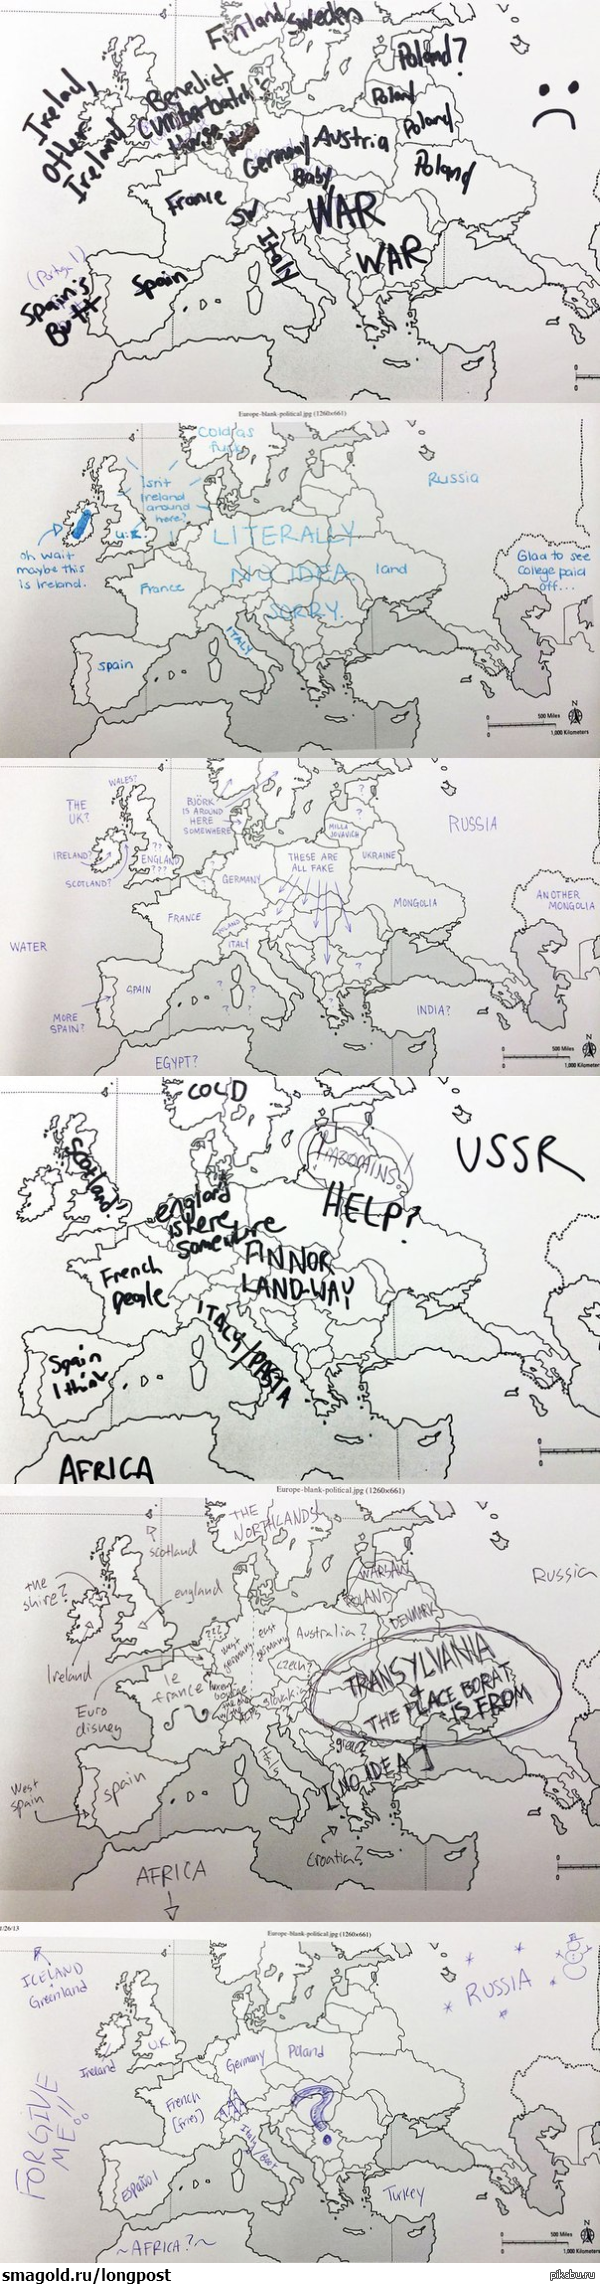 Finland
Sweden
Poland?
Ireland,
Other
Ireland
Benedict
Cumberbatch's
House
Poland
Poland
Germany
Austria
Poland
Baby
France
SW
Italy
WAR
WAR
Spain's
Butt
Spain
0
0
Europe-blank-political.jpg (1260×661)
Cold as
Isn't
Ireland
around
here?
Russia
U.K.
Oh wait
maybe this
is Ireland.
LITERALLY
NO IDEA.
SORRY.
land
France
Glad to see
College paid
off...
ITALY
Spain
N
0
500 Miles
0
1,000 Kilometers
WALES?
THE
UK?
BJÖRK
IS AROUND
HERE
SOMEWHERE
?
?
MILLA
JOVAVICH
RUSSIA
IRELAND?
??
ENGLAND
???
SCOTLAND?
?
GERMANY
THESE ARE
ALL FAKE
UKRAINE
FRANCE
MONGOLIA
ANOTHER
MONGOLIA
WATER
ITALY
SPAIN
?
?
?
?
?
MORE
SPAIN?
INDIA?
EGYPT?
N
0
500 Miles
0
1,000 Kilometer
COLD
USSR
Scotland?
England
is here
somewhere
HELP?
FINNOR
LAND-WAY
French
people
ITALY/PASTA
Spain
I think
AFRICA
0
0
Europe-blank-political.jpg (1260×661)
THE
NORTHLANDS
Scotland
the
shire?
england
WARSAW
POLAND
DENMARK
Russia
???
west
germany
east
germany
Australia?
Ireland
Czech?
TRANSYLVANIA
THE PLACE BORAT
IS FROM
le
france
Euro
disney
slovakia
west
spain
spain
[NO IDEA]
Croatia?
AFRICA
0
0
1/26/13
Europe-blank-political.jpg (1260×661)
ICELAND
Greenland
RUSSIA
U.K.
Ireland
Germany
Poland
French
(fries)
?
FORGIVE
ME!!
Español
Turkey
~AFRICA?~
N
0
500 Miles
0
1,000 Kilometers
smagold.ru/longpost
pikabu.ru